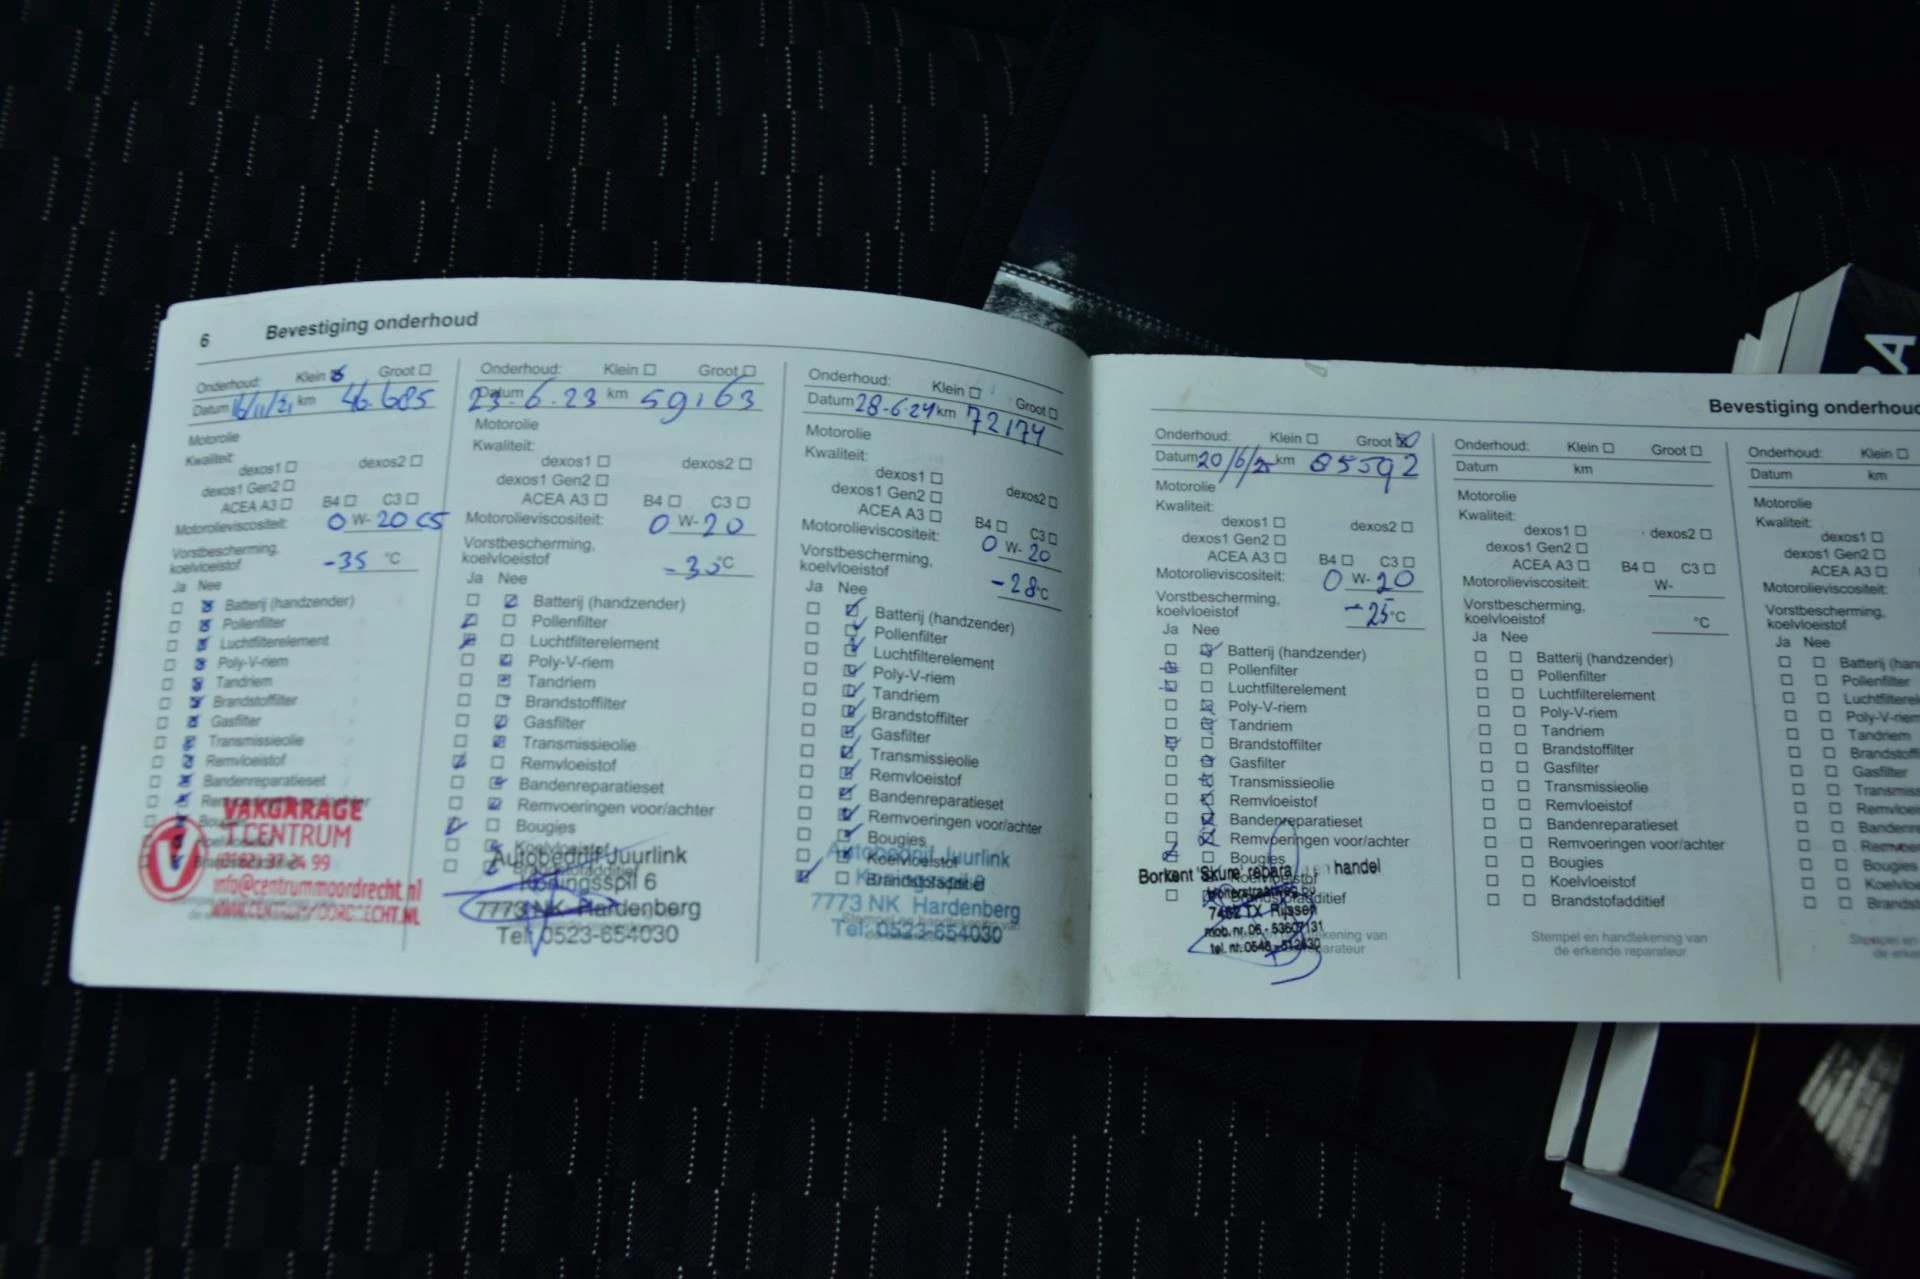 6 Bevestiging onderhoud
Onderhoud: Klein Groot
Datum 16/11/21 km 46.685
Motorolie
Kwaliteit:
dexos1 dexos2
dexos1 Gen2
ACEA A3 B4 C3
Motorolieviscositeit: 0 W- 20 C5
Vorstbescherming,
koelvloeistof -35 °C
Ja Nee
Batterij (handzender)
Pollenfilter
Luchtfilterelement
Poly-V-riem
Tandriem
Brandstoffilter
Gasfilter
Transmissieolie
Remvloeistof
Bandenreparatieset
VAKGARAGE
'T CENTRUM
info@centrummoordrecht.nl
WWW.CENTRUMMOORDRECHT.NL
Onderhoud: Klein Groot
Datum 23-6-23 km 59163
Motorolie
Kwaliteit:
dexos1 dexos2
dexos1 Gen2
ACEA A3 B4 C3
Motorolieviscositeit: 0 W-20
Vorstbescherming,
koelvloeistof -30°C
Ja Nee
Batterij (handzender)
Pollenfilter
Luchtfilterelement
Poly-V-riem
Tandriem
Brandstoffilter
Gasfilter
Transmissieolie
Remvloeistof
Bandenreparatieset
Remvoeringen voor/achter
Bougies
Koelvloeistof
Brandstofadditief
Autobedrijf Juurlink
Koningsspil 6
7773 NK Hardenberg
Tel: 0523-654030
Onderhoud: Klein Groot
Datum 28-6-24 km 72174
Motorolie
Kwaliteit:
dexos1 dexos2
dexos1 Gen2
ACEA A3 B4 C3
Motorolieviscositeit: 0 W- 20
Vorstbescherming,
koelvloeistof -28°C
Ja Nee
Batterij (handzender)
Pollenfilter
Luchtfilterelement
Poly-V-riem
Tandriem
Brandstoffilter
Gasfilter
Transmissieolie
Remvloeistof
Bandenreparatieset
Remvoeringen voor/achter
Bougies
Koelvloeistof
Brandstofadditief
Autobedrijf Juurlink
Koningsspil 6
7773 NK Hardenberg
Tel: 0523-654030
Bevestiging onderhoud
Onderhoud: Klein Groot
Datum 20/6/25 km 85592
Motorolie
Kwaliteit:
dexos1 dexos2
dexos1 Gen2
ACEA A3 B4 C3
Motorolieviscositeit: 0 W-20
Vorstbescherming,
koelvloeistof -25°C
Ja Nee
Batterij (handzender)
Pollenfilter
Luchtfilterelement
Poly-V-riem
Tandriem
Brandstoffilter
Gasfilter
Transmissieolie
Remvloeistof
Bandenreparatieset
Remvoeringen voor/achter
Bougies
Koelvloeistof
Brandstofadditief
Borkent 'Skure' handel
7462 TX Rijssen
mob. nr. 06 - 53607131
tel. nr. 0548 - 512630
Onderhoud: Klein Groot
Datum km
Motorolie
Kwaliteit:
dexos1 dexos2
dexos1 Gen2
ACEA A3 B4 C3
Motorolieviscositeit: W-
Vorstbescherming,
koelvloeistof °C
Ja Nee
Batterij (handzender)
Pollenfilter
Luchtfilterelement
Poly-V-riem
Tandriem
Brandstoffilter
Gasfilter
Transmissieolie
Remvloeistof
Bandenreparatieset
Remvoeringen voor/achter
Bougies
Koelvloeistof
Brandstofadditief
Stempel en handtekening van
de erkende reparateur
Onderhoud: Klein
Datum km
Motorolie
Kwaliteit:
dexos1
dexos1 Gen2
ACEA A3
Motorolieviscositeit:
Vorstbescherming,
koelvloeistof
Ja Nee
Batterij (han
Pollenfilter
Luchtfilterel
Poly-V-riem
Tandriem
Brandstoffil
Gasfilter
Transmiss
Remvloei
Bandenre
Remvoe
Bougies
Koelvloe
Brandst
Stempel en
de erke